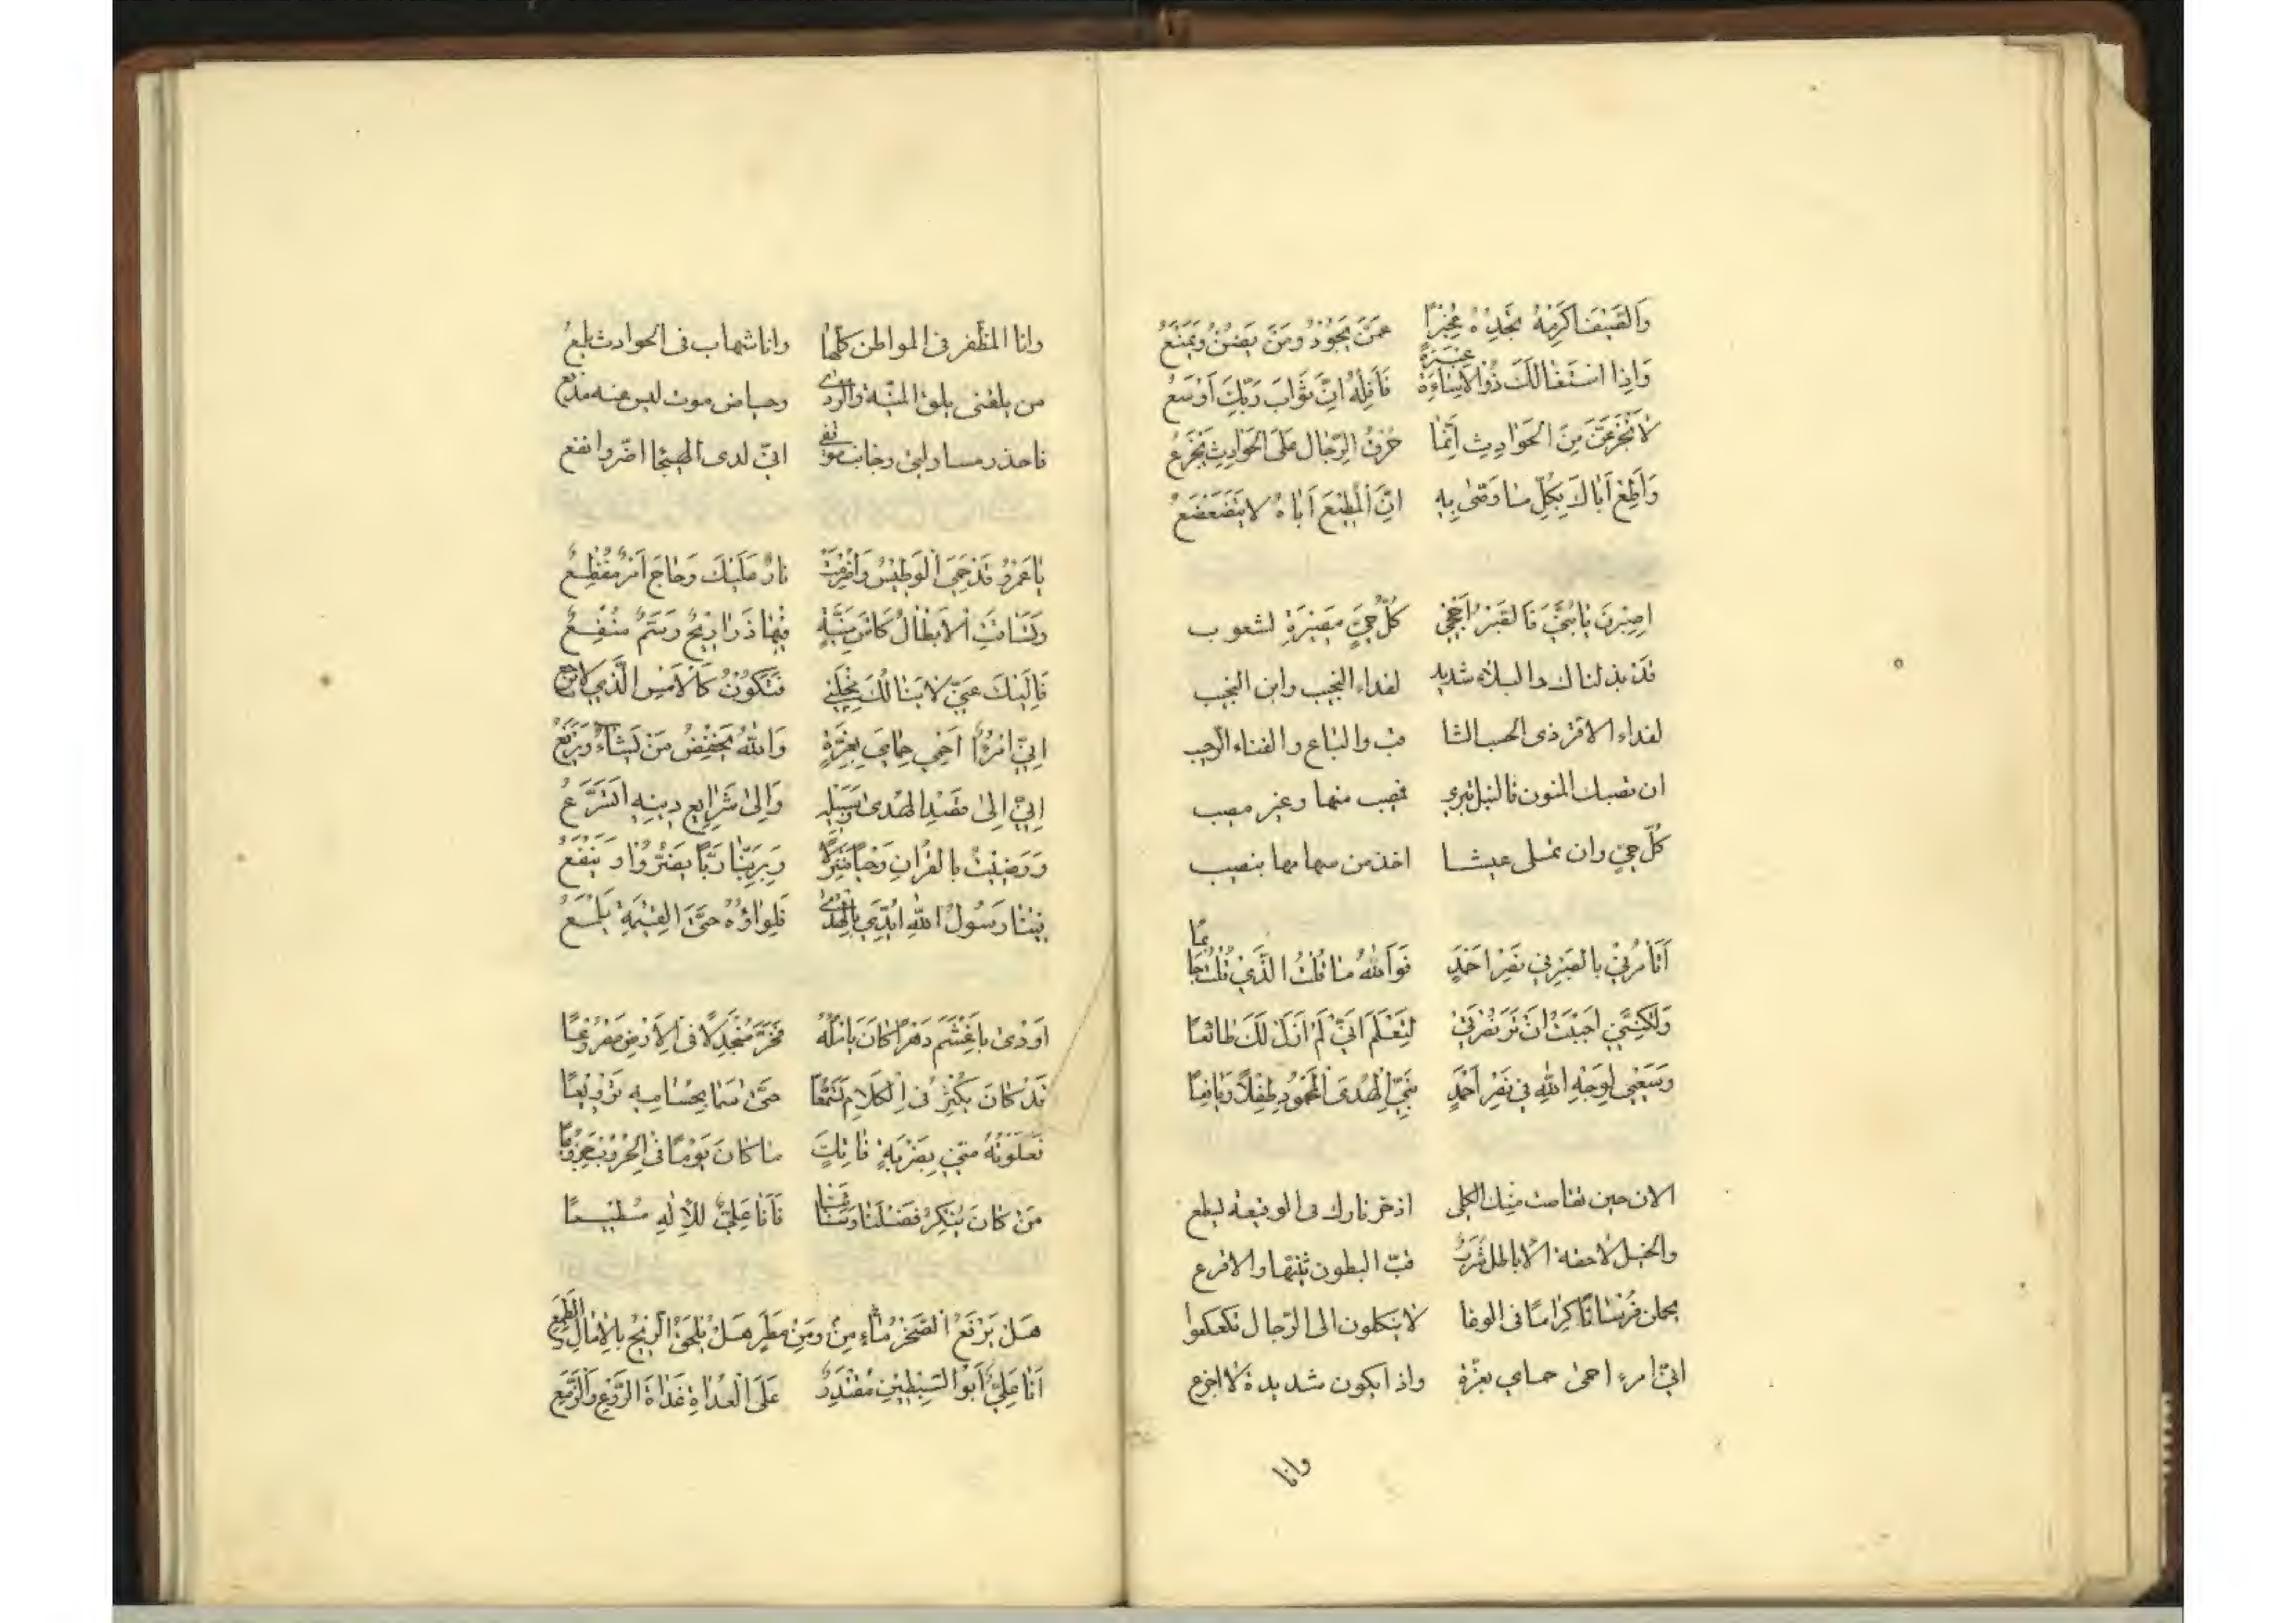 وَالضَّيْفَ اَكْرِمْهُ تَجِدْهُ مُخْبِرًا عَمَّنْ يَجُوْدُ وَمَنْ يَضُنُّ وَيَمْنَعُ
عَثْرَةً
وَاِذَا اسْتَقَالَكَ ذُوالْاِسَاءَةِ فَاَقِلْهُ اِنَّ ثَوَابَ رَبِّكَ اَوْسَعُ
لَاتَجْزَعَنَّ مِنَ الْحَوَادِثِ اِنَّمَا خُرْقُ الرِّجَالِ عَلَى الْحَوَادِثِ يَجْزَعُ
وَاَطِعْ اَبَاكَ بِكُلِّ مَا وَصّٰى بِهِ اِنَّ الْمُطِيْعَ اَبَاهُ لَا يَتَضَعْضَعُ
اِصْبِرَنْ يَا بُنَيَّ فَالصَّبْرُ اَحْجٰى كُلُّ حَيٍّ مَصِيْرُهُ لشعوب
قَدْ بذلناك والبلاء شديد لفداء النجيب وابن النجيب
لفداء الاغر ذى الحسب الثا قب والباع والفناء الرحيب
ان تصبك المنون فالنبل تبرى فصيب منها وغير مصيب
كُلّ حيّ وان تملى عيشا اخذ من سهامها بنصيب
اَتَأْمُرُنِيْ بِالصَّبْرِ فِي نَصْرِ اَحْمَدٍ فَوَاللهِ مَا قُلْتُ الَّذِيْ قُلْتُ جَازِعًا
وَلٰكِنَّنِي اَحْبَبْتُ اَنْ تَرَ نُصْرَتِيْ لِتَعْلَمَ اَنِّي لَمْ اَزَلْ لَكَ طَائِعًا
وَسَعْيِي لِوَجْهِ اللهِ فِي نَصْرِ اَحْمَدٍ نَبِيِّ الْهُدَى الْمَحْمُوْدِ طِفْلًا وَيَافِعًا
الان حين تقلصت منك الكلى اذ حر نارك فى الوقيعة يسطع
والخيل لاحقة الاياطل شُزَّبٌ قبّ البطون ثنيّها والاقرع
يحملن فُرْسَانًا كِرَامًا فى الوغا لا ينكلون الى الرّجال تكعكعوا
انّى امرء احمى حماى بعزّة واذا تكون شديدة لا اجزع
وانا
وانا المظفر فى المواطن كلّها وانا شهاب فى الحوادث يلمع
من يلقنى يلق المنيّة والردى وحياض موت ليس عنه مدفع
فاحذر مساولتى وجانب موقفى انّى لدى الهيجا اضرّ وانفع
يَا عَمْرُو قَدْ حَمِيَ الْوَطِيْسُ وَاُضْرِمَتْ نَارٌ عَلَيْكَ وَهَاجَ اَمْرٌ مُفْظِعٌ
وَتَسَاقَتِ الْاَبْطَالُ كَأْسَ مَنِيَّةٍ فِيْهَا ذَرَارِيْحٌ وَسَمٌّ مُنْقَعٌ
فَاِلَيْكَ عَنِّي لَا يَنَالُكَ مِخْلَبِي فَتَكُوْنُ كَالْاَمْسِ الَّذِي لَا يَرْجِعُ
اِنِّي امْرُؤٌ اَحْمِي حِمَايَ بِعِزَّةٍ وَاللهُ يَخْفِضُ مَنْ يَشَاءُ وَيَرْفَعُ
اِنِّي اِلٰى قَصْدِ الْهُدٰى وَسَبِيْلِهِ وَاِلٰى شَرَائِعِ دِيْنِهِ اَتَسَرَّعُ
وَرَضِيْتُ بِالْقُرْاٰنِ وَحْيًا مُنْزَلًا وَبِرَبِّنَا رَبًّا يَضُرُّ وَيَنْفَعُ
فِيْنَا رَسُوْلُ اللهِ اُيِّدَ بِالْهُدٰى فَلِوَاؤُهُ حَتَّى الْقِيٰمَةِ يَلْمَعُ
اَوْدٰى بِاَغْشَمَ دَهْرًا كَانَ يَأْمُلُهُ فَخَرَّ مُنْجَدِلًا فِى الْاَرْضِ مَصْرُوْعًا
قَدْ كَانَ يُكْثِرُ فِى الْكَلَامِ تَسَمُّعًا حَتّٰى سَمَا بِحُسَامِهِ تَرْوِيْعًا
فَعَلَوْتُهُ مِنِّي بِضَرْبَةِ فَاتِكٍ مَا كَانَ يَوْمًا فِى الْحُرُوْبِ جَزُوْعًا
مَنْ كَانَ يُنْكِرُ فَضْلَنَا وَسَنَاءَنَا فَاَنَا عَلِيٌّ لِلْاِلٰهِ مُطِيْعًا
هَلْ يَرْقَعُ الصَّخْرُ مَاءً مِنْ وَمِنْ مَطَرٍ هَلْ يُلْحَقُ الرِّيْحُ بِالْاٰمَالِ وَالطَّمَعِ
اَنَا عَلِيٌّ اَبُو السِّبْطَيْنِ مُقْتَدِرٌ عَلَى الْعُدَاةِ غَدَاةَ الرَّوْعِ وَالزَّمَعِ